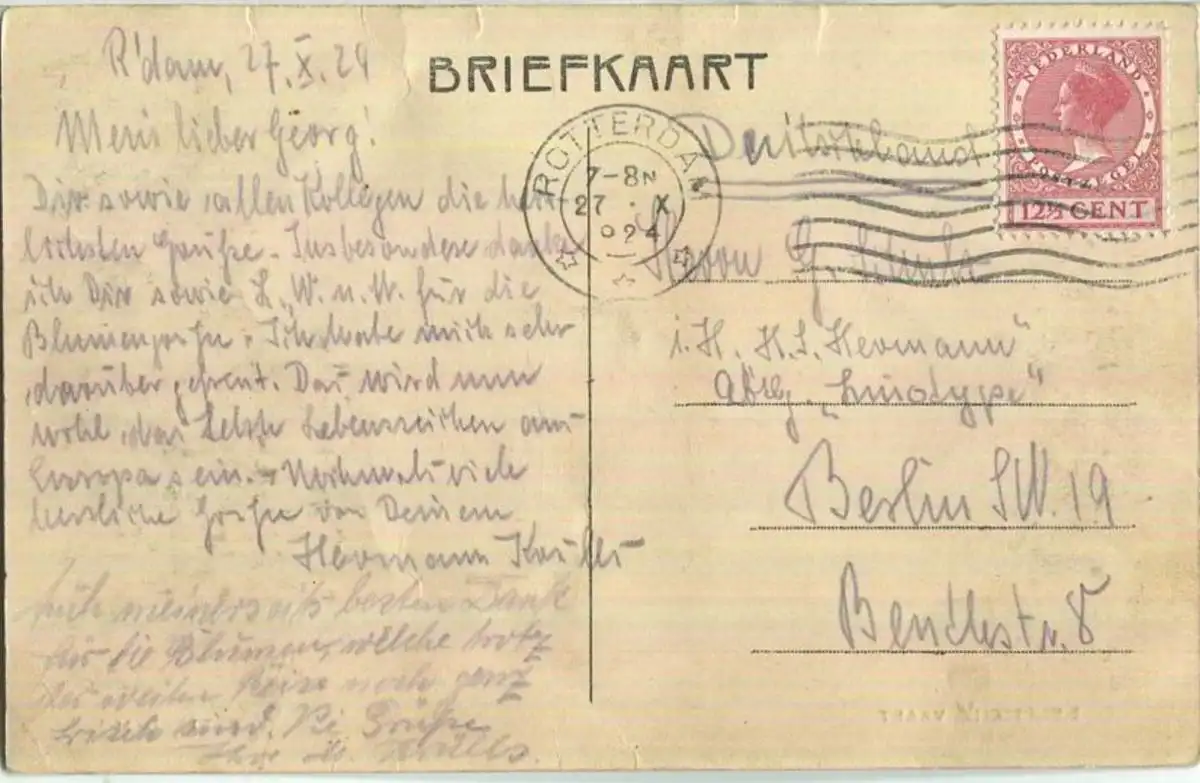 R'dam, 27.X.24
BRIEFKAART
Mein lieber Georg!
Dir sowie allen Kollegen die herz-
lichsten Grüße. Insbesondere danke
ich Dir sowie L. W. u. W. für die
Blumengrüße. Ich habe mich sehr
darüber gefreut. Das wird nun
wohl das letzte Lebenszeichen aus
Europa sein. Nochmals viele
herzliche Grüße von Deinem
Hermann
Auch meinerseits besten Dank
für die Blumen, welche trotz
der weiten Reise noch ganz
frisch sind. Grüße
Ihre
ROTTERDAM
7-8N
27 . X
1924
NEDERLAND
POSTZEGEL
12½ CENT
Deutschland
Herrn G.
i. H. H.S. Hermann"
Abtlg. "Linotype"
Berlin SW. 19
Beuthstr. 8